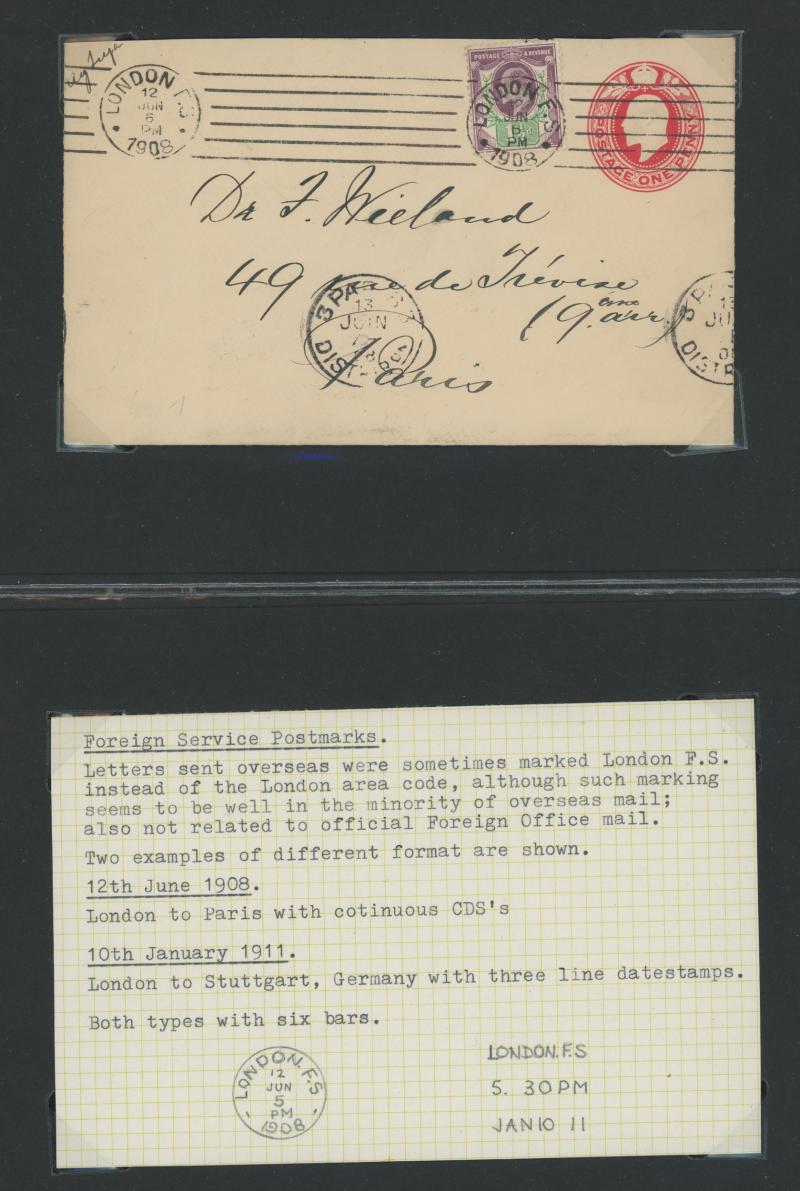 via Supp
LONDON F.S
12
JUN
6
PM
1908
POSTAGE & REVENUE
LONDON F.S
12
JUN
6
PM
1908
POSTAGE ONE PENNY
Dr F. Wieland
49 rue de Trévise
(9. ème arr.)
Paris
3 PARIS 3
13
JUIN
DISTR
3 PA
13
JU
DISTR
Foreign Service Postmarks.
Letters sent overseas were sometimes marked London F.S.
instead of the London area code, although such marking
seems to be well in the minority of overseas mail;
also not related to official Foreign Office mail.
Two examples of different format are shown.
12th June 1908.
London to Paris with cotinuous CDS's
10th January 1911.
London to Stuttgart, Germany with three line datestamps.
Both types with six bars.
LONDON.F.S
12
JUN
5
PM
1908
LONDON.F.S
5. 30PM
JAN10 11